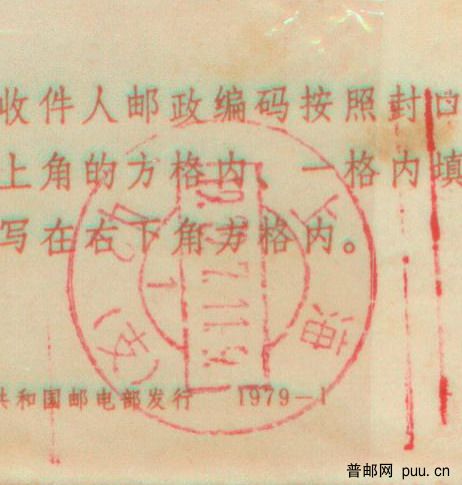 收件人邮政编码按照封口
上角的方格内、一格内填
写在右下角方格内。
共和国邮电部发行 1979-1
上海
普邮网 puu.cn